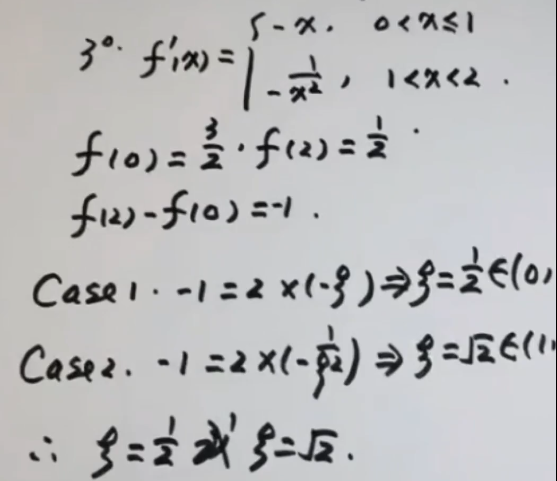 3°. f'(x) = { -x, 0<x≤1
-1/x², 1<x<2.
f(0) = 3/2, f(2) = 1/2.
f(2)-f(0) = -1.
Case 1. -1 = 2×(-ξ) ⇒ ξ = 1/2 ∈ (0,
Case 2. -1 = 2×(-1/ξ²) ⇒ ξ = √2 ∈ (1,
∴ ξ = 1/2 或 ξ = √2.